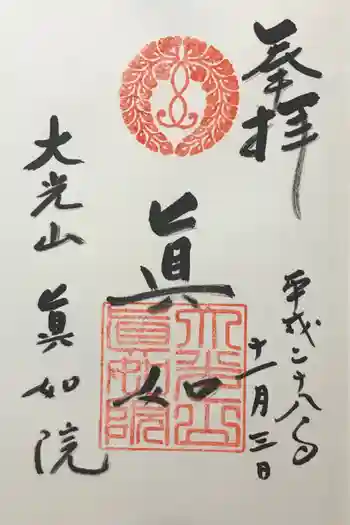 奉拝
平成二十八年
十一月三日
眞如
大光山 眞如院
大光山
眞如院